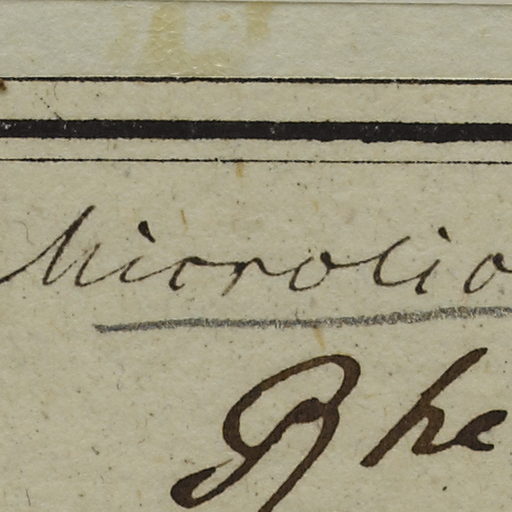 Microcio
Phe